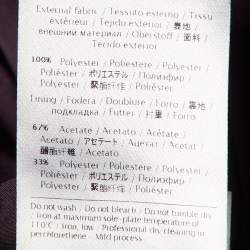 External fabric / Tessuto esterno / Tissu
extérieur / Tejido exterior / 表地 /
внешний материал / Oberstoff / 面料 /
Tecido exterior
100% Polyester / Poliestere / Polyester /
Poliéster / ポリエステル / Полиэфир /
Polyester / 聚酯纤维 / Poliéster
Lining / Fodera / Doublure / Forro / 裏地 /
подкладка / Futter / 衬里 / Forro
67% Acetate / Acetato / Acétate /
Acetato / アセテート / Ацетат / Acetat /
醋酯纤维 / Acetato
33% Polyester / Poliestere / Polyester /
Poliéster / ポリエステル / Полиэфир /
Polyester / 聚酯纤维 / Poliéster
Do not wash / Do not bleach / Do not tumble dry
/ Iron at maximum sole-plate temperature of
110°C / Iron, low / Professional dry cleaning in
perchlorethene Mild process